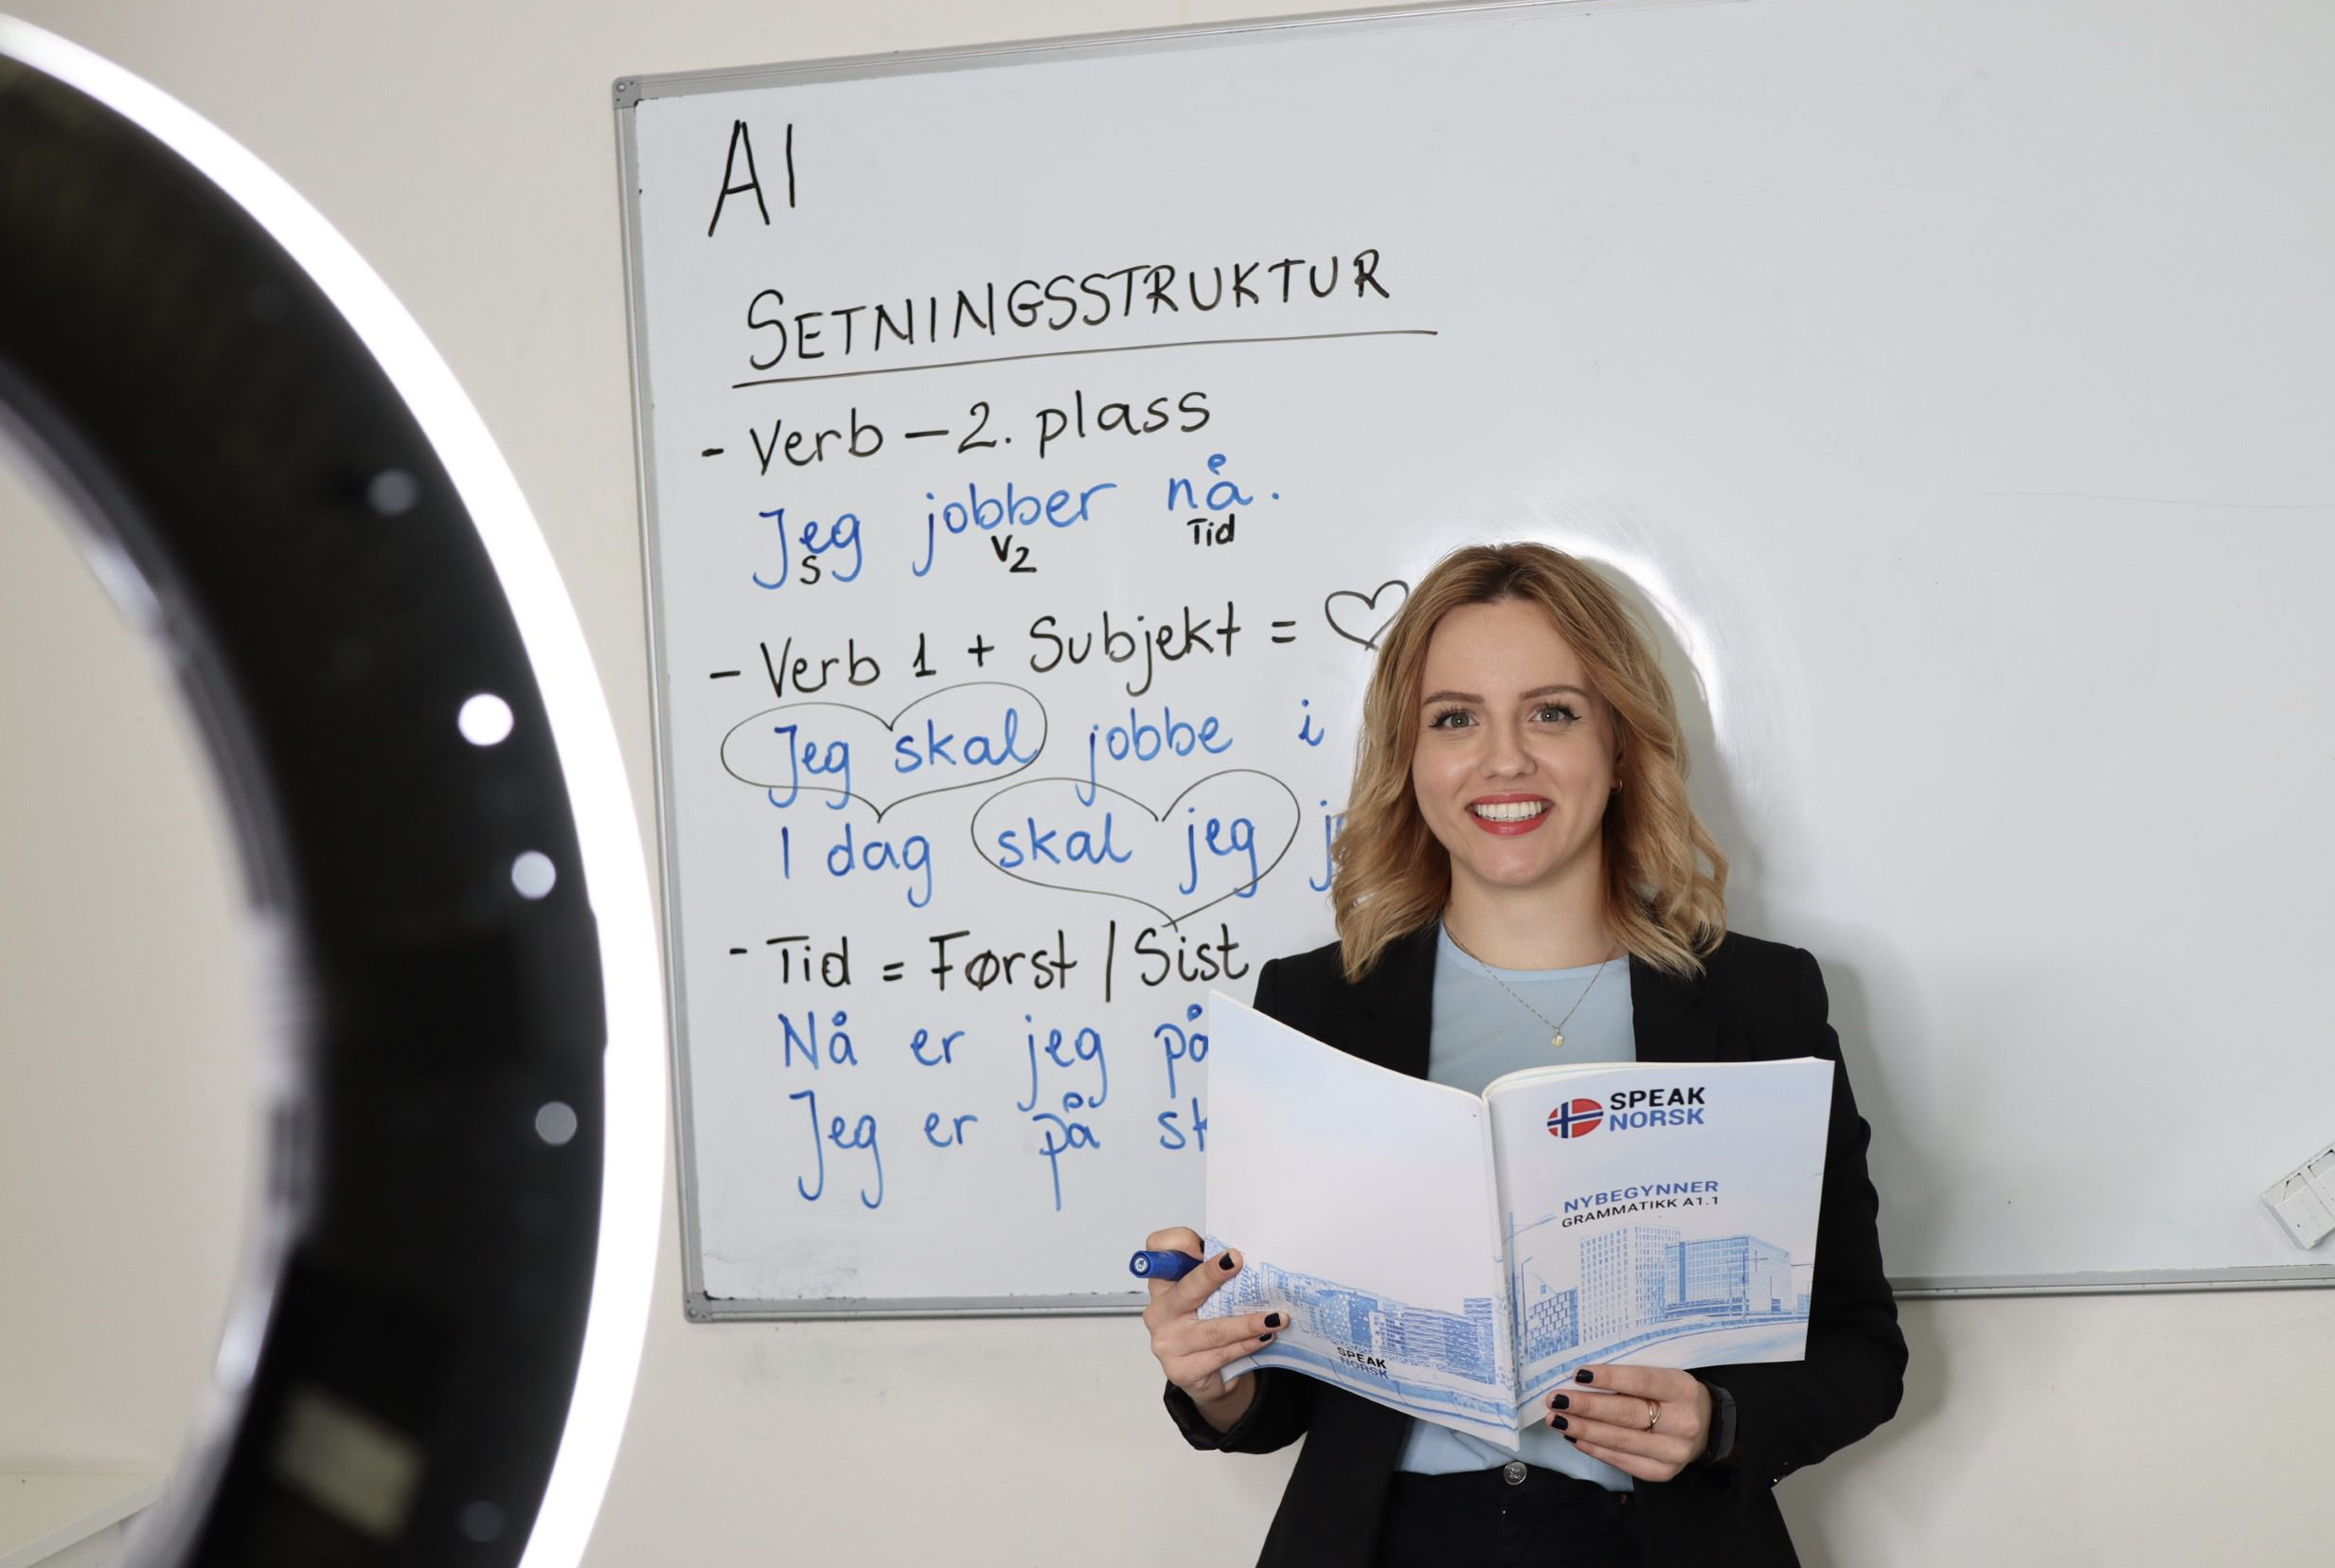 A1
SETNINGSSTRUKTUR
- Verb – 2. plass
Jeg jobber nå.
S V2 Tid
- Verb 1 + Subjekt = ♡
Jeg skal jobbe i
I dag skal jeg
- Tid = Først / Sist
Nå er jeg på
Jeg er på
SPEAK
NORSK
NYBEGYNNER
GRAMMATIKK A1.1
SPEAK
NORSK